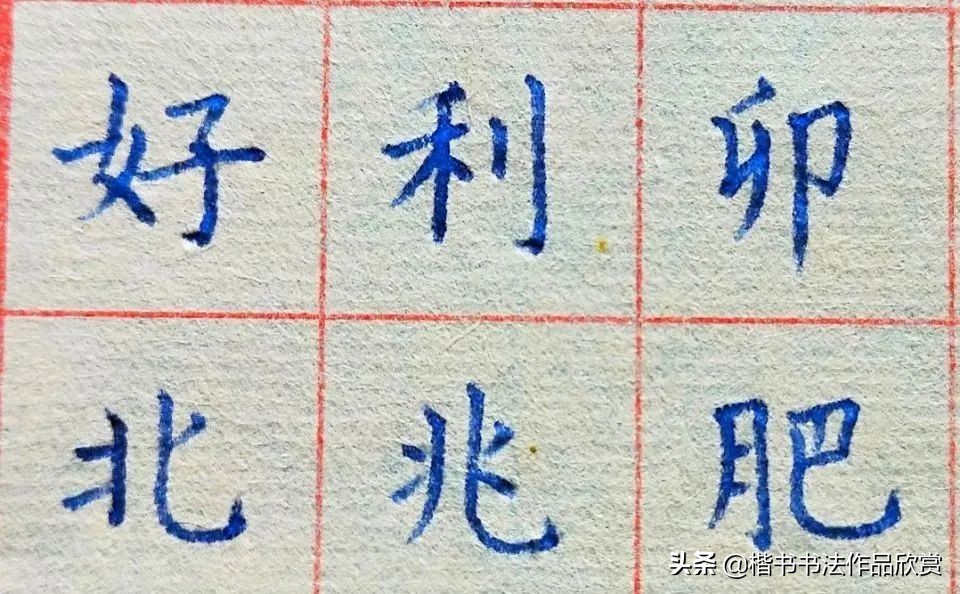 好利卯
北兆肥
头条@楷书书法作品欣赏